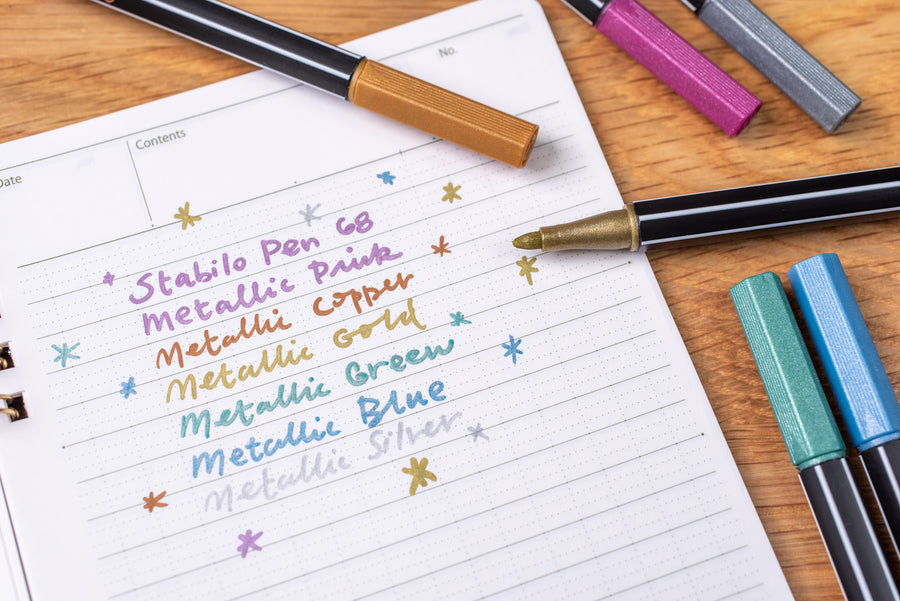 No.
Contents
Date
Stabilo Pen 68
Metallic Pink
Metallic Copper
Metallic Gold
Metallic Green
Metallic Blue
Metallic Silver